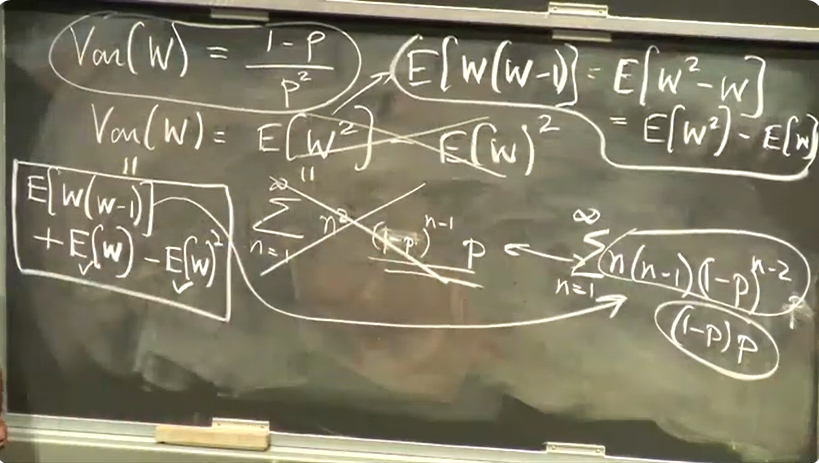 Var(W) = 1-p / p²
E[W(W-1)] = E[W²-W]
= E[W²] - E[W]
Var(W) = E[W²] - E[W]²
||
||
E[W(W-1)]
+ E[W] - E[W]²
∞ Σ n=1 n² (1-p)^{n-1} p
∞ Σ n=1 n(n-1)(1-p)^{n-2}
(1-p)p